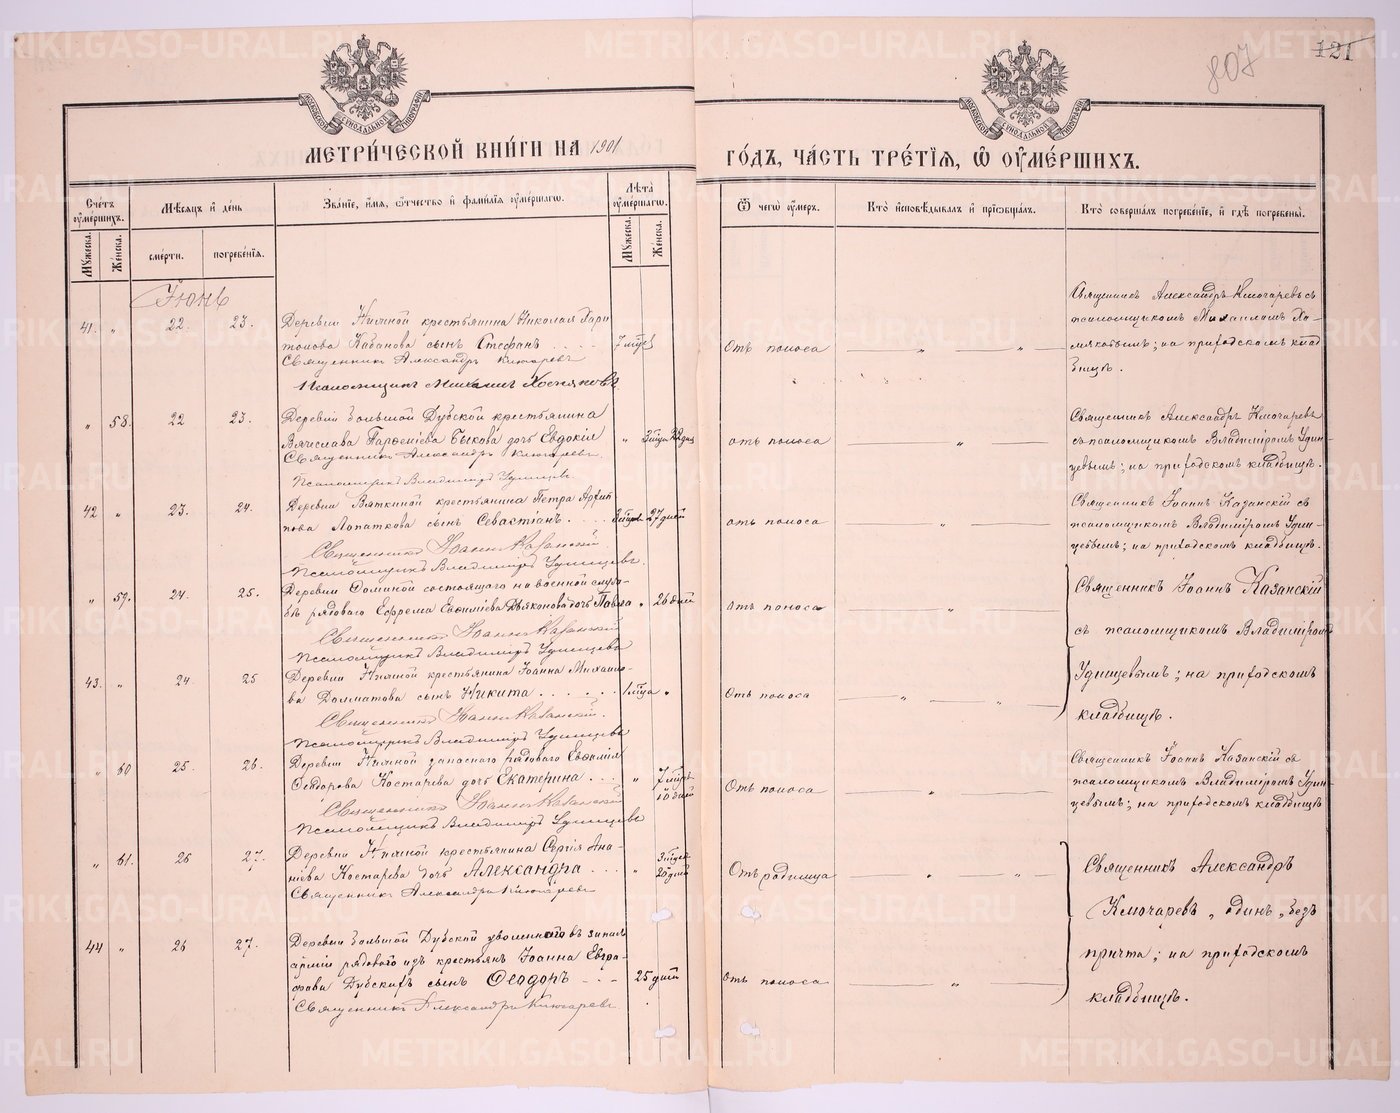 807
121
МЕТРИ́ЧЕСКОЙ КНИ́ГИ НА 1901
ГО́ДЪ, ЧА́СТЬ ТРЕ́ТІЯ, Ѡ ОУМЕ́РШИХЪ.
Сче́тъ оуме́ршихъ.
Мѣсяцъ и день
Зва́ніе, и́мя, о́тчество и фами́лія оуме́ршагѡ.
Лѣта оуме́ршагѡ.
Ѿ чегѡ оу́меръ.
Кто̀ исповѣдывалъ и пріѡбща́лъ.
Кто̀ соверша́лъ погребе́ніе, и гдѣ̀ погребены̀.
Мꙋжеска. Же́нска. сме́рти. погребе́нія. Мꙋжеска. Же́нска.
Іюнь
41. „ 22. 23. Деревни Няшной крестьянина Николая Хари
тонова Кабанова сынъ Стефанъ . . . . 7 мѣс
Священникъ Александръ Ключаревъ
Псаломщикъ Михаилъ Хомяковъ
Отъ поноса
Священникъ Александръ Ключаревъ съ
псаломщикомъ Михаиломъ Хо-
мяковымъ; на приходскомъ клад
бищѣ.
„ 58. 22 23. Деревни Большой Дубской крестьянина
Вячеслава Парѳеніева Быкова дочь Евдокія
Священникъ Александръ Ключаревъ.
Псаломщикъ Владиміръ Удинцевъ.
отъ поноса
Священникъ Александръ Ключаревъ
съ псаломщикомъ Владиміромъ Удин-
цевымъ; на приходскомъ кладбищѣ.
42 „ 23. 24. Деревни Вяткиной крестьянина Петра Архип
пова Лопаткова сынъ Севастіанъ. . . . 27 дней
Священникъ Іоаннъ Казанскій.
Псаломщикъ Владиміръ Удинцевъ.
отъ поноса
Священникъ Іоаннъ Казанскій съ
псаломщикомъ Владиміромъ Удин-
цевымъ; на приходскомъ кладбищѣ.
„ 59. 24. 25. Деревни состоящаго на военной служ-
бѣ рядоваго Ефрема Евѳиміева Дьяконова дочь Павла „ 26 дней
Священникъ Іоаннъ Казанскій
Псаломщикъ Владиміръ Удинцевъ
отъ поноса
Священникъ Іоаннъ Казанскій
съ псаломщикомъ Владиміромъ
Удинцевымъ; на приходскомъ
кладбищѣ.
43. „ 24. 25 Деревни Няшной крестьянина Іоанна Михаило-
ва Долматова сынъ Никита . . . . . . 1 мѣсца „
Священникъ Іоаннъ Казанскій.
Псаломщикъ Владиміръ Удинцевъ
Отъ поноса
„ 60 25. 26. Деревни Няшной запаснаго рядоваго Евѳимія
Ѳеодорова Костарева дочь Екатерина . . . „ 7 мѣсц.
10 дней
Священникъ Іоаннъ Казанскій
Псаломщикъ Владиміръ Удинцевъ
Отъ поноса
Священникъ Іоаннъ Казанскій съ
псаломщикомъ Владиміромъ Удин-
цевымъ; на приходскомъ кладбищѣ
„ 61. 26 27. Деревни Няшной крестьянина Сергія Ана-
ніева Костарева дочь Александра . . . „ 3 мѣсц
20 дней
Священникъ Александръ Ключаревъ
Отъ родимца
Священникъ Александръ
Ключаревъ „ одинъ „ безъ
причта; на приходскомъ
кладбищѣ.
44 „ 26 27. Деревни Большой Дубской уволеннаго въ запасъ
арміи рядоваго изъ крестьянъ Іоанна Евгра-
фова Дубскихъ сынъ Ѳеодоръ . . . 25 дней
Священникъ Александръ Ключаревъ.
Отъ поноса